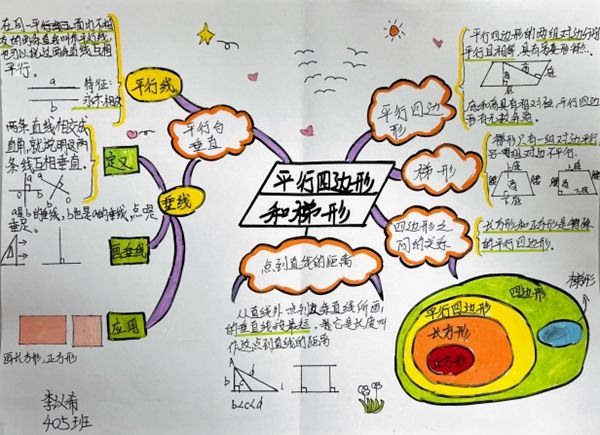 在同一平面内不相
交的两条直线叫作平行线,
也可以说这两条直线互相
平行.
a
b
特征:
永不相交
平行线
两条直线相交成
直角,就说明这两
条线互相垂直.
a是b的垂线,b也是a的垂线,点o是
垂足.
定义
垂线
画垂线
应用
画长方形,正方形
平行与
垂直
平行四边形
和梯形
点到直线的距离
从直线外一点到这条直线所画
的垂直线段最短,
它的长度叫
作这点到直线的距离
A
b c d
l
b<c<d
平行四边
形
平行四边形的两组对边分别
平行且相等,
高
底
底和高具有相对性,平行四边
形有无数条高.
梯形
梯形只有一组对边平行,
另一组对边不平行.
上底
腰
高
腰
下底
四边形之
间的关系
长方形和正方形是特殊
的平行四边形.
四边形
梯形
平行四边形
长方形
正方形
405班